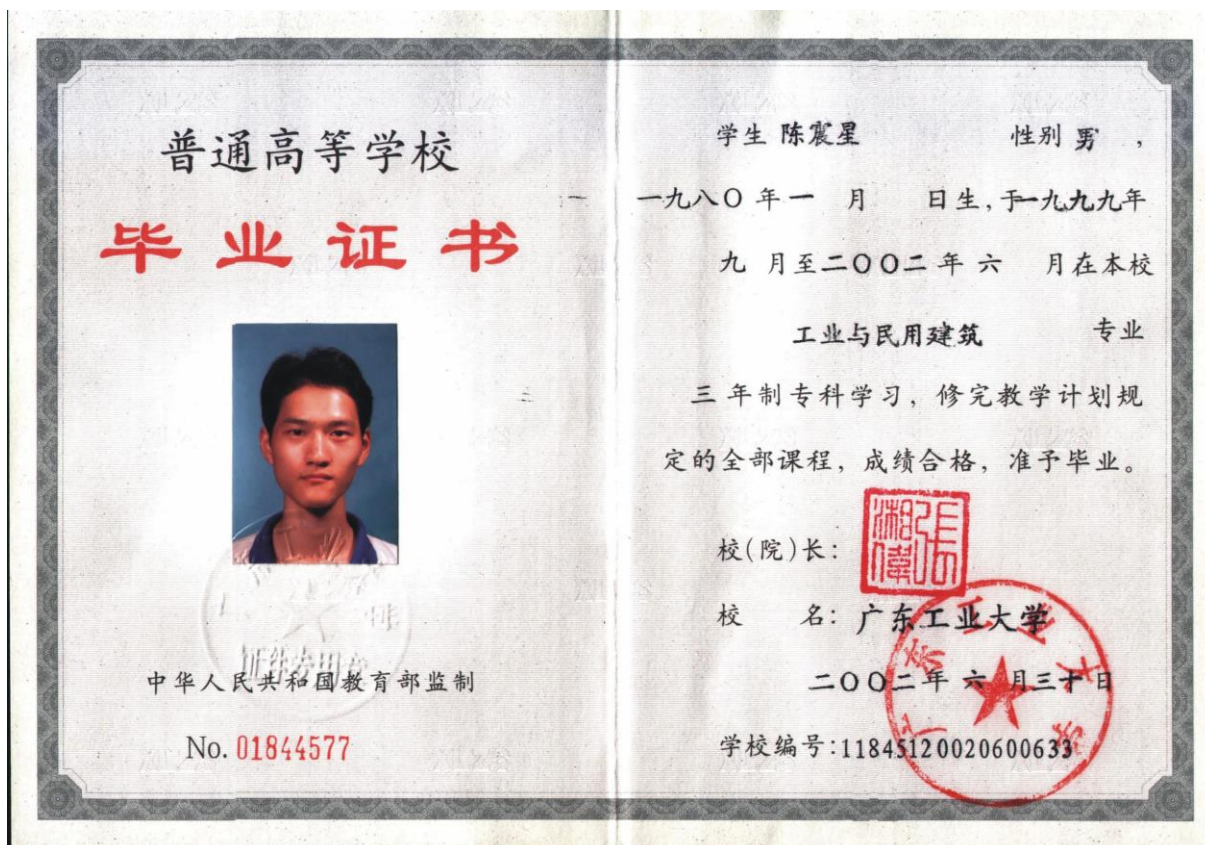 普通高等学校
毕业证书
中华人民共和国教育部监制
No. 01844577
学生 陈震星 性别 男 ,
一九八〇 年 一 月 日生, 于一九九九年
九 月至二〇〇二 年 六 月在本校
工业与民用建筑 专业
三 年制专科学习, 修完教学计划规
定的全部课程, 成绩合格, 准予毕业。
校(院)长:
張湘偉
校 名: 广东工业大学
广东工业大学
二〇〇二年 六 月三十日
学校编号:11845120020600633